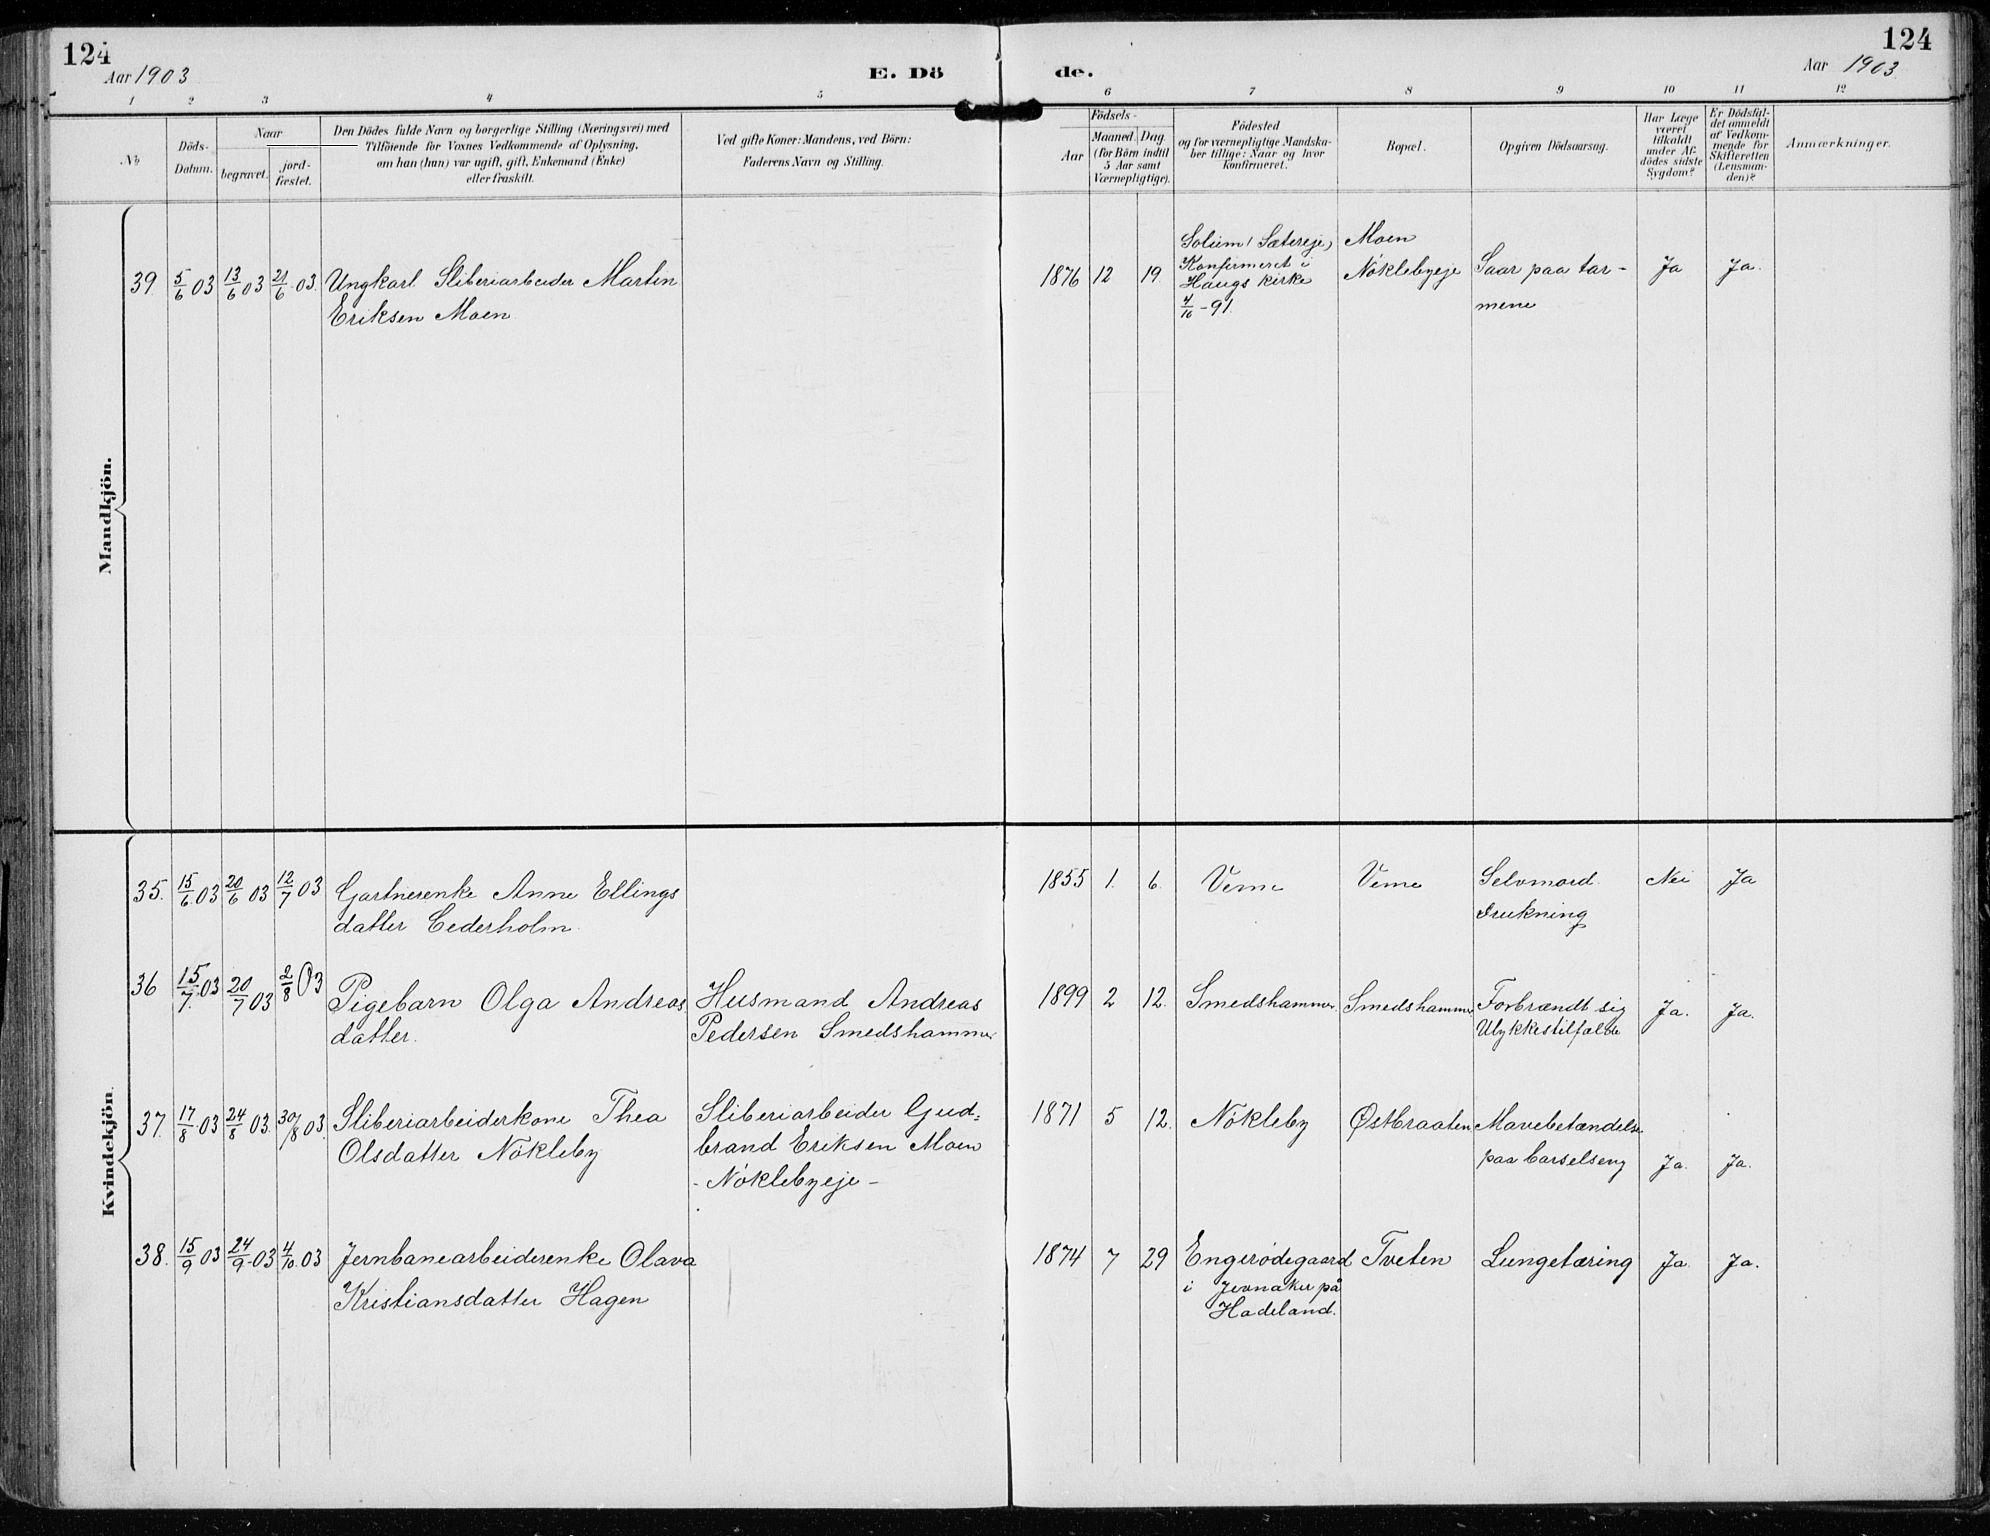 124
124
Aar 1903
E. Dö
de.
Aar 1903
1 2 3 4 5 6 7 8 9 10 11 12
No
Döds-
Datum.
Naar
begravet.
jord-
fæstet.
Den Dödes fulde Navn og borgerlige Stilling (Næringsvei) med
Tilföiende for Voxnes Vedkommende af Oplysning,
om han (hun) var ugift, gift, Enkemand (Enke)
eller fraskilt.
Ved gifte Koner: Mandens, ved Börn:
Faderens Navn og Stilling.
Födsels-
Aar
Maaned. Dag.
(for Börn indtil
5 Aar samt
Værnepligtige).
Födested
og for værnepligtige Mandska-
ber tillige: Naar og hvor
konfirmeret.
Bopæl.
Opgiven Dödsaarsag.
Har Læge
været
tilkaldt
under Af-
dödes sidste
Sygdom?
Er Dödsfal-
det anmeldt
af Vedkom-
mende for
Skifteretten
(Lensman-
den)?
Anmærkninger.
Mandkjön.
39. 5/6 03 13/6 03 21/6 03. Ungkarl Sliberiarbeider Martin
Eriksen Moen.
1876 12 19.
Solum (Sætereje)
Konfirmeret i
Haugs kirke
4/10 - 91.
Moen
Nöklebyeje
Saar paa tar-
mene
Ja Ja.
Kvindekjön.
35. 15/6 03 20/6 03 12/7 03 Gartnerenke Anne Ellings
datter Cederholm.
1855 1. 6. Veme Veme Selvmord.
drukning
Nei Ja
36 15/7 03 20/7 03 2/8 03 Pigebarn Olga Andreas
datter.
Husmand Andreas
Pedersen Smedshammer
1899 2 12. Smedshammer. Smedshammer Forbrændt sig
Ulykkestilfælde
Ja. Ja.
37. 17/8 03 24/8 03. 30/8 03. Sliberiarbeiderkone Thea
Olsdatter Nökleby
Sliberiarbeider Gud=
brand Eriksen Moen
- Nöklebyeje -
1871 5 12. Nökleby Østbraaten Mavebetændelse
paa barselseng
Ja. Ja.
38. 15/9 03 24/9 03 4/10 03 Jernbanearbeiderenke Olava
Kristiansdatter Hagen
1874 7 29 Engerödegaard
i Jevnaker på
Hadeland.
Tveten Lungetæring Ja. Ja.